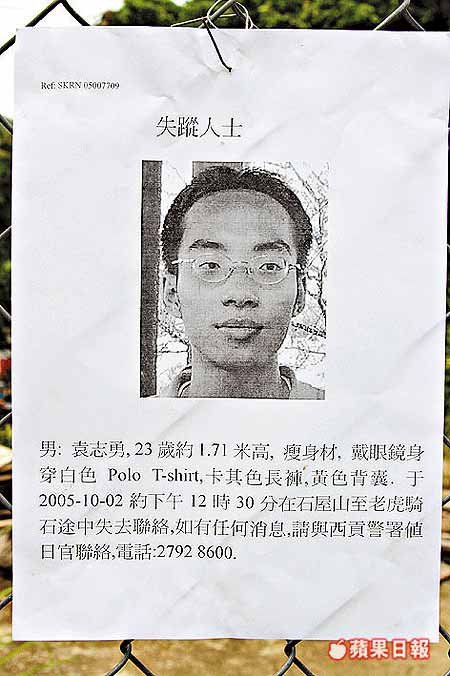 Ref: SKRN 05007709
失蹤人士
男: 袁志勇, 23 歲約 1.71 米高, 瘦身材, 戴眼鏡身
穿白色 Polo T-shirt,卡其色長褲,黃色背囊. 于
2005-10-02 約下午 12 時 30 分在石屋山至老虎騎
石途中失去聯絡,如有任何消息,請與西貢警署值
日官聯絡,電話:2792 8600.
蘋果日報